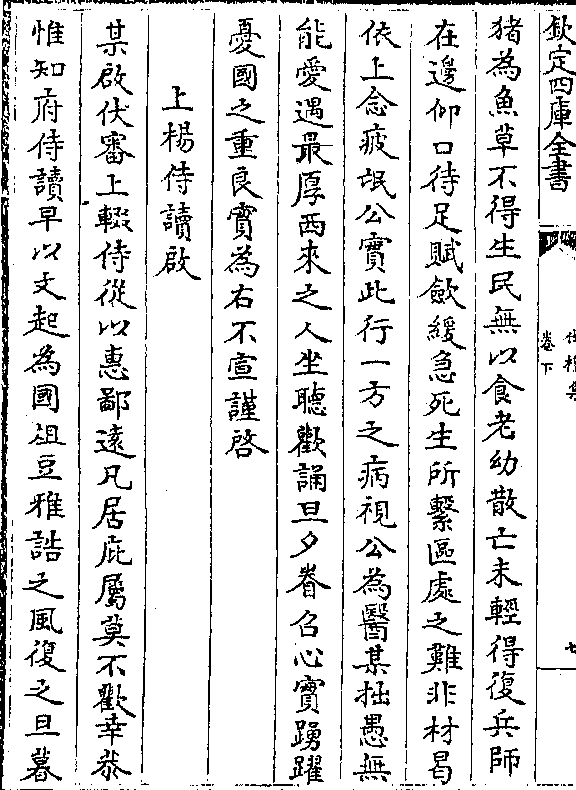 欽定四庫全書
卷下
七
猪為魚草不得生民無以食老幼散亡未輕得復兵師
在邊仰口待足賦斂緩急死生所繫區處之難非材曷
依上念疲氓公實此行一方之病視公為醫某拙愚無
能愛遇最厚西來之人坐聽歡誦旦夕眷召心實踴躍
憂國之重良實為右不宣謹啓
上楊侍讀啟
某啟伏審上輟侍從以惠鄙遠凡居庇屬莫不歡幸恭
惟知府侍讀早以文起為國俎豆雅誥之風復之旦暮